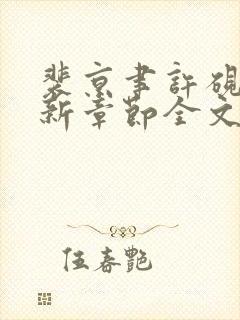 裴京書許硯
新章節全文
伍春艷